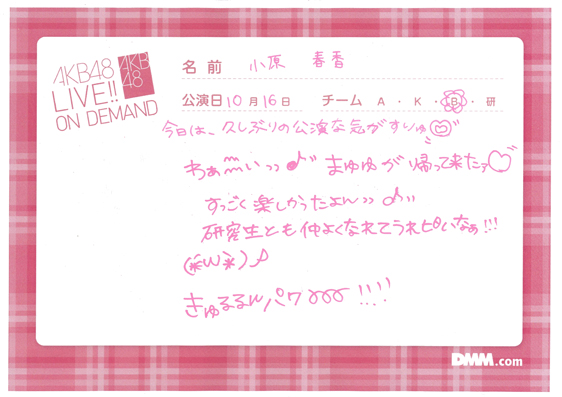 AKB48
LIVE!!
ON DEMAND
AKB
48
名前 小原 春香
公演日 10月16日 チーム A・K・B・研
今日は、久しぶりの公演な気がすりゅ
わぁーいっっ♪" まゅゅが帰って来たァ♡"
すっごく楽しかったよんっっ♪"
研究生とも仲よくなれてうれピいなぁ!!!
(*ω*)♪
きゅるるんパワ!!!!
DMM.com